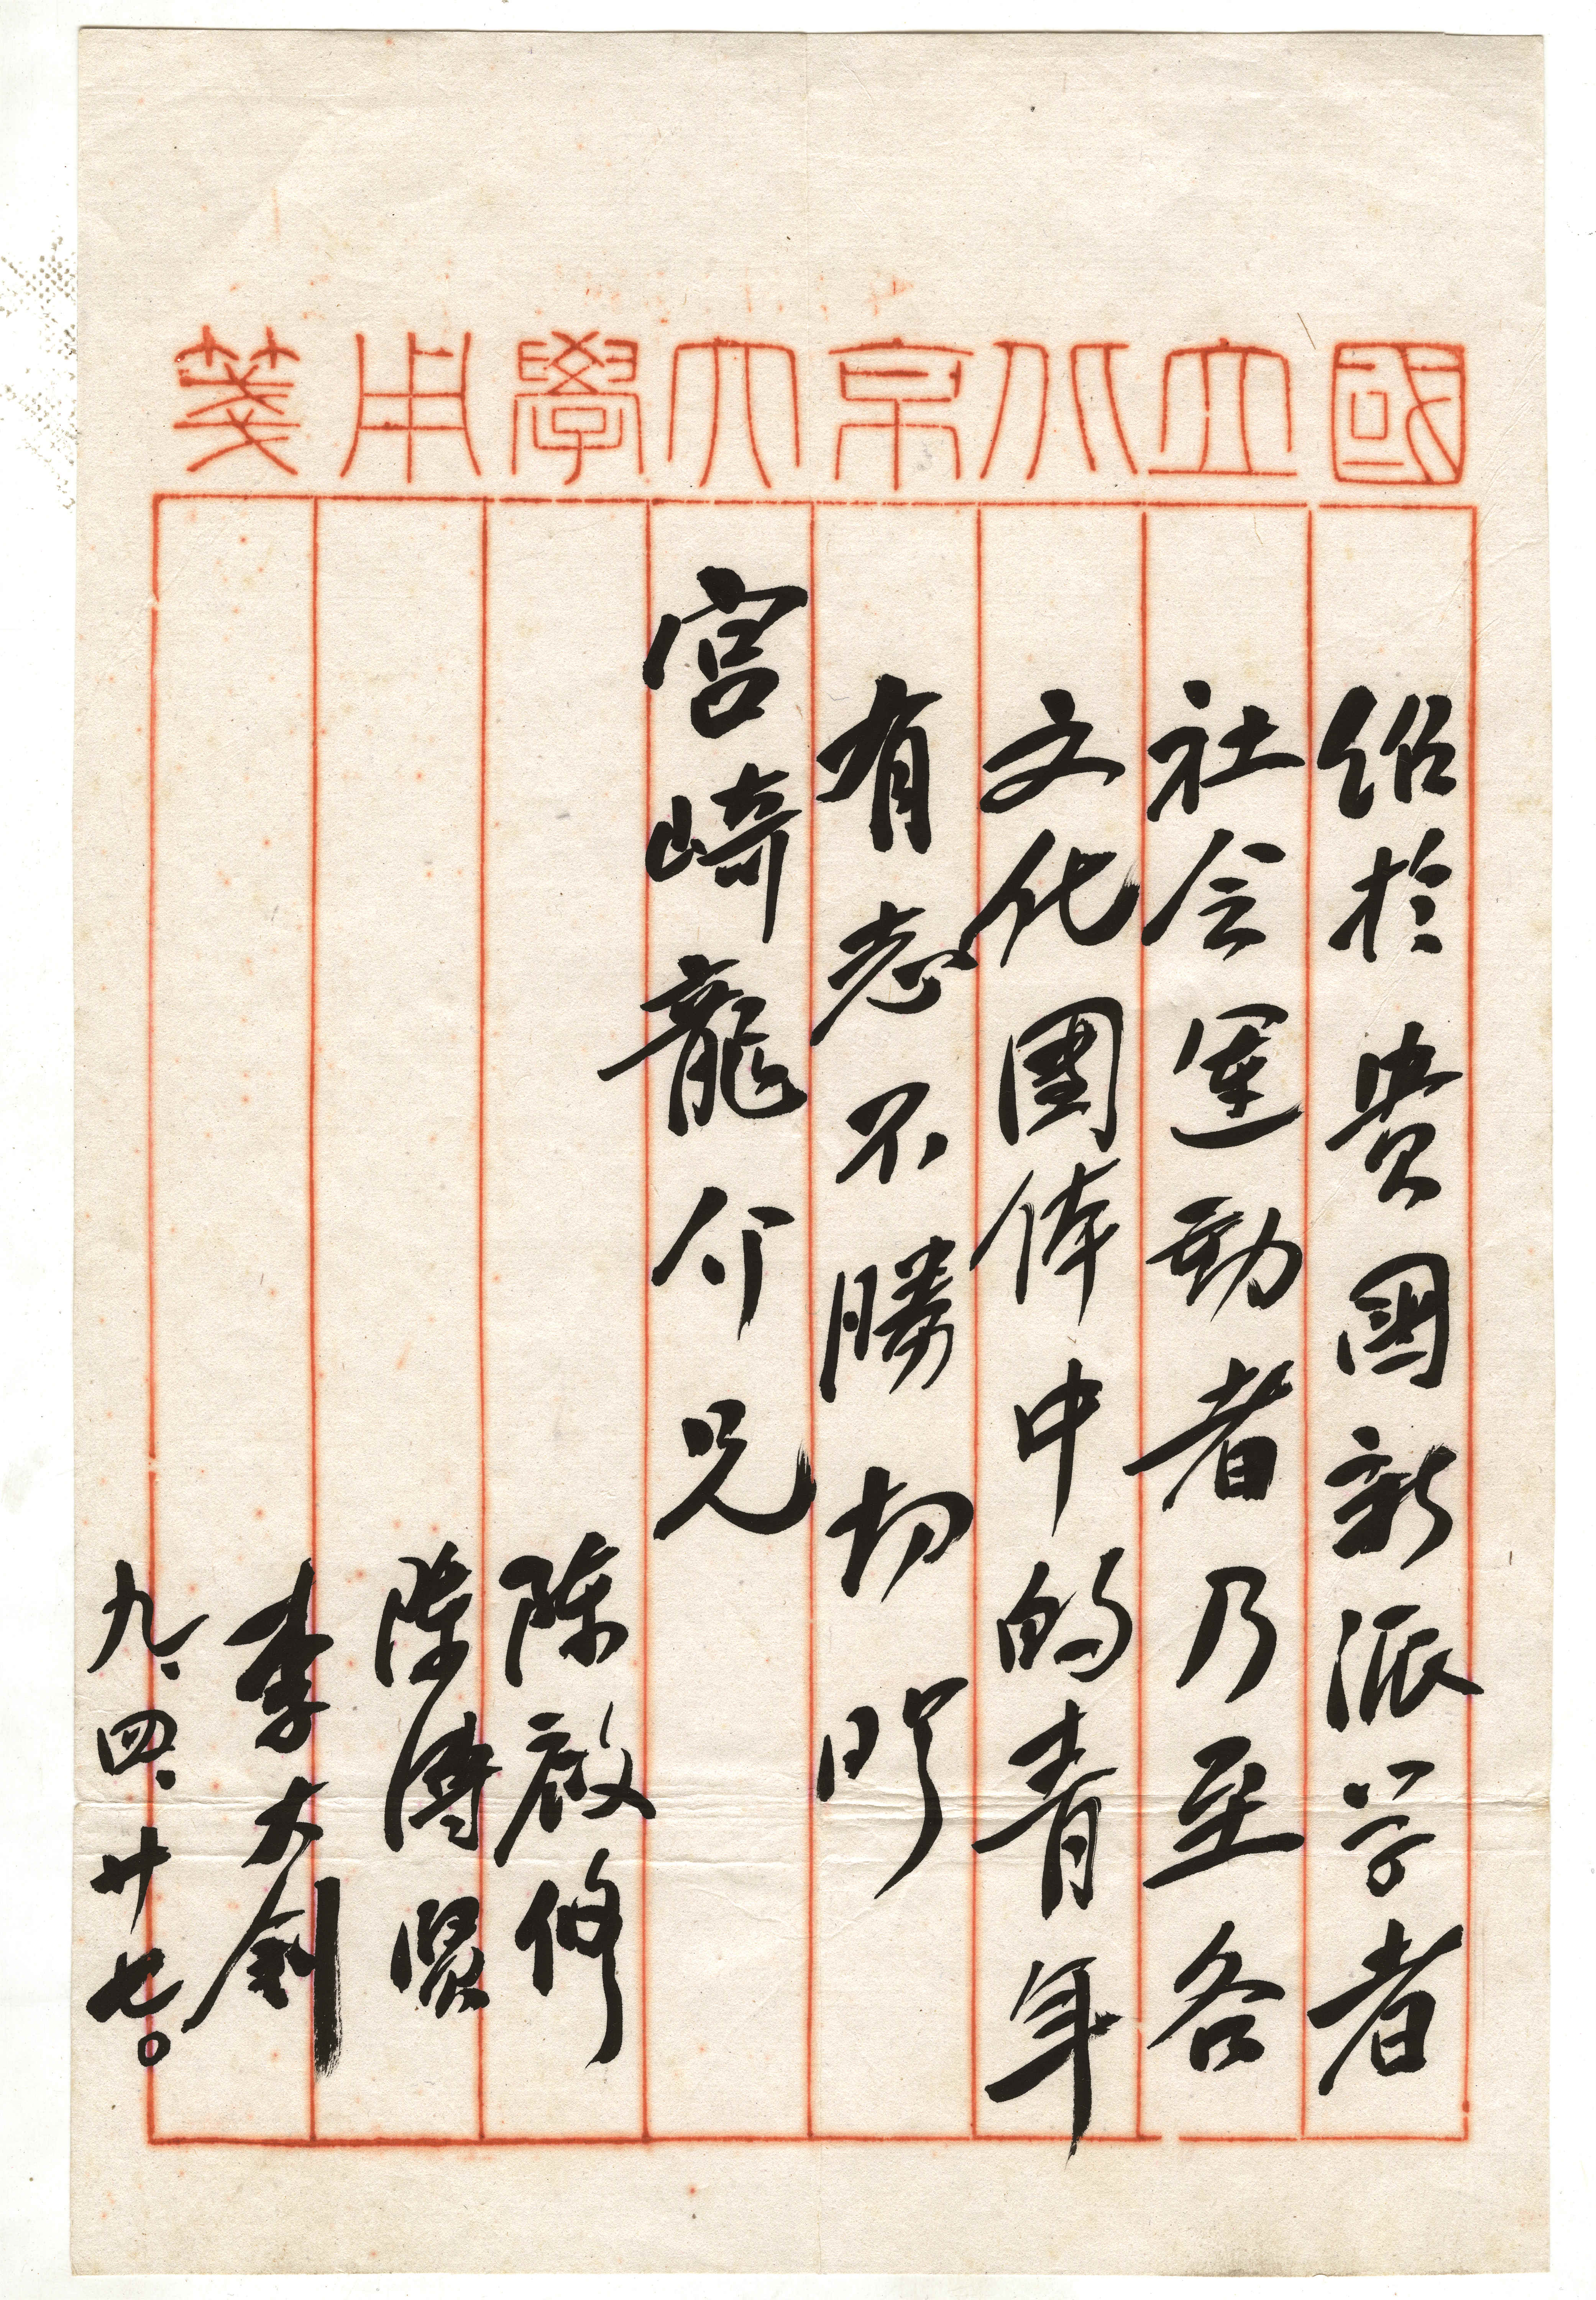 國立北京大學用箋
绍於貴國新派学者
社会運動者乃至各
文化團体中的青年
有志不勝切盼
宮崎龍介兄
陈啟修
陳溥賢
李大釗
九、四、廿七。